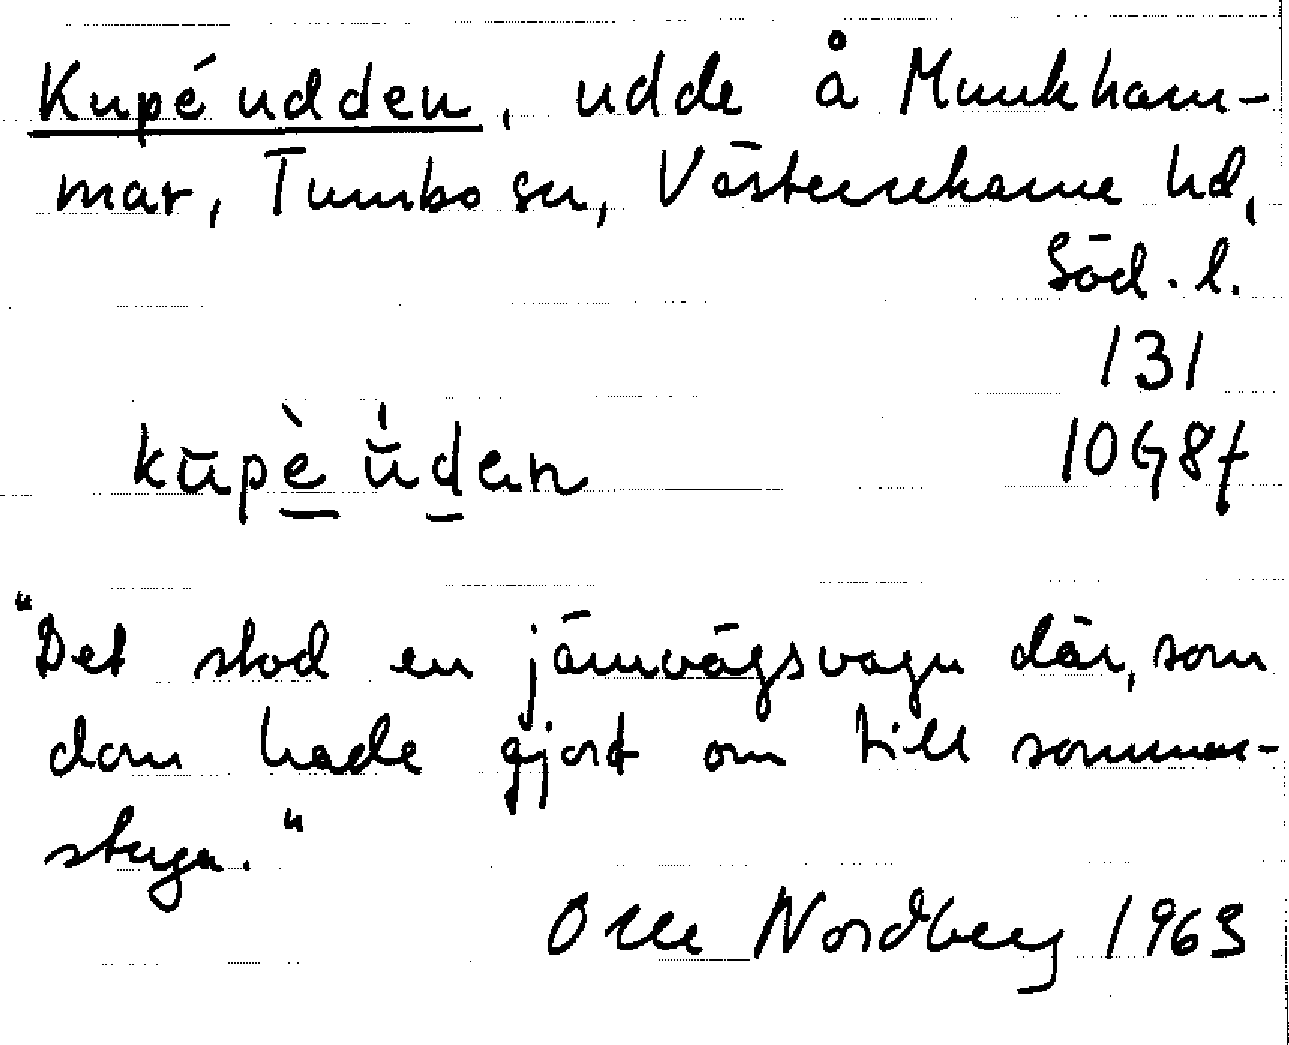 Kupéudden, udde å Munkham-
mar, Tumbo sn, Västerrekarne hd,
Söd. l.
131
10G8f
kūpè ŭ̍den
"Det stod en järnvägsvagn där, som
dom hade gjort om till sommar-
stuga."
Olle Nordberg 1963